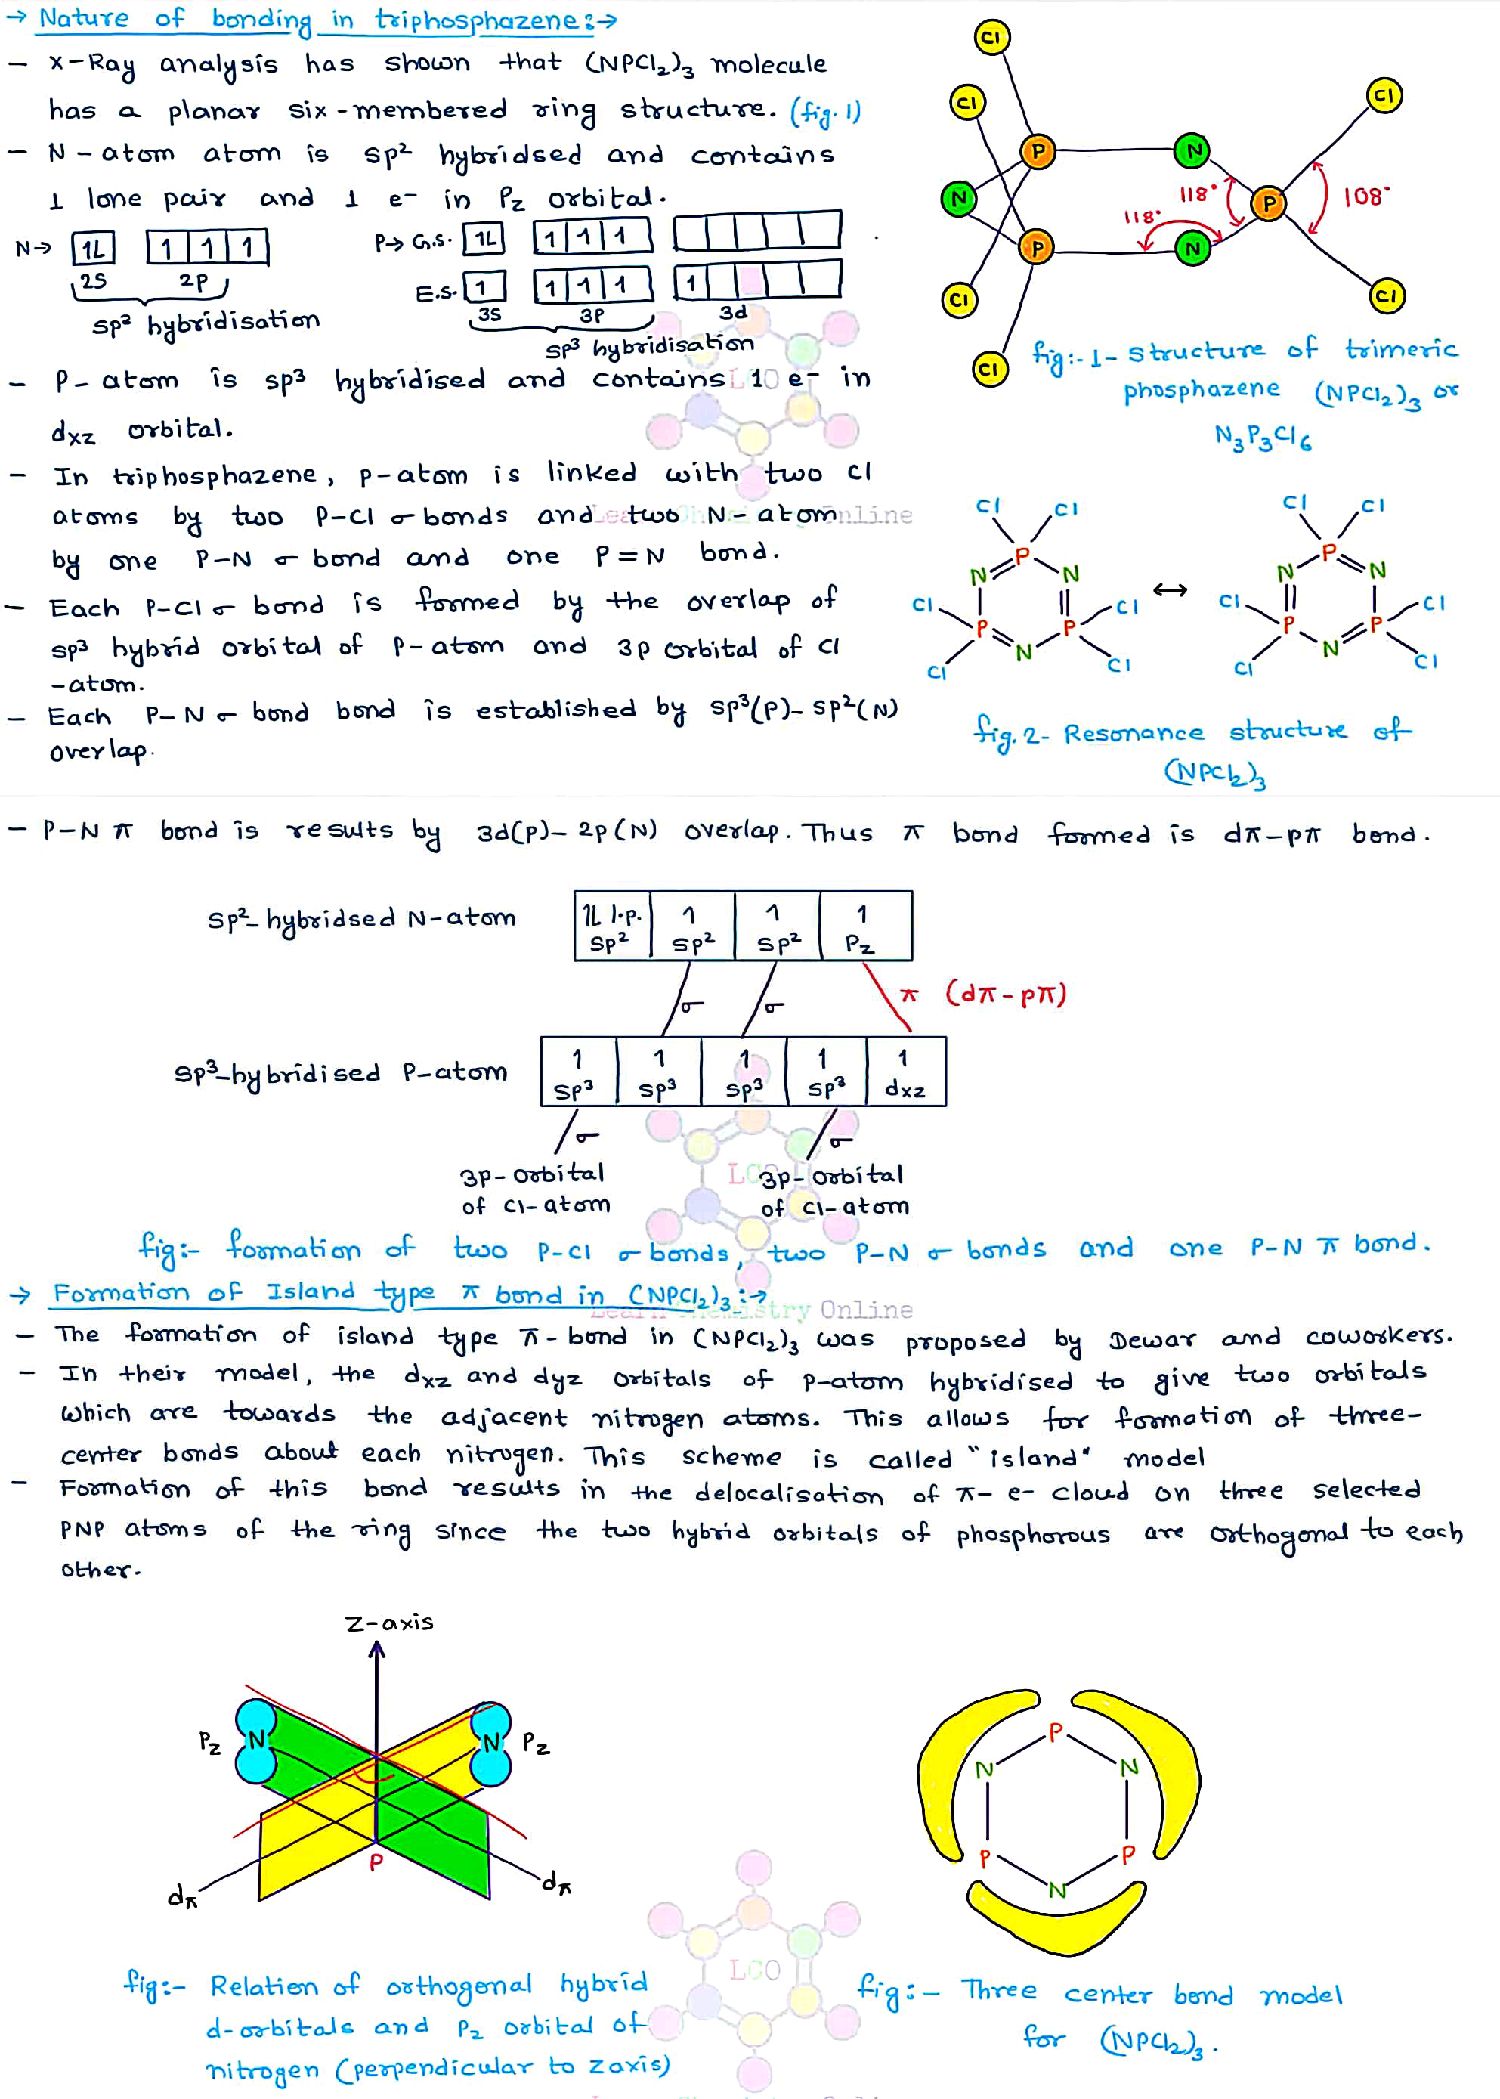 → Nature of bonding in triphosphazene:→
– X-Ray analysis has shown that (NPCl₂)₃ molecule
has a planar six-membered ring structure. (fig.1)
– N-atom atom is sp² hybridsed and contains
1 lone pair and 1 e⁻ in Pz orbital.
N→ 1L 1 1 1
2S 2P
sp² hybridisation
P→ G.S. 1L 1 1 1
E.S. 1 1 1 1 1
3S 3P 3d
sp³ hybridisation
– P-atom is sp³ hybridised and contains 1 e⁻ in
dxz orbital.
– In triphosphazene, p-atom is linked with two cl
atoms by two P-Cl σ bonds and two N-atom
by one P-N σ bond and one P=N bond.
– Each P-Cl σ bond is formed by the overlap of
sp³ hybrid orbital of P-atom and 3p orbital of Cl
-atom.
– Each P-N σ bond bond is established by sp³(P)-sp²(N)
overlap.
Cl
Cl
Cl
P N
N 118° P 108°
118°
P N
Cl
Cl
Cl
fig:-1- structure of trimeric
phosphazene (NPCl₂)₃ or
N₃P₃Cl₆
Cl Cl
P
N N
Cl P P Cl
N
Cl Cl
↔
Cl Cl
P
N N
Cl P P Cl
N
Cl Cl
fig.2- Resonance structure of
(NPCl₂)₃
– P-N π bond is results by 3d(P)-2p(N) overlap. Thus π bond formed is dπ-pπ bond.
sp²-hybridsed N-atom
1L l.p. 1 1 1
sp² sp² sp² Pz
σ σ π (dπ-pπ)
sp³-hybridised P-atom
1 1 1 1 1
sp³ sp³ sp³ sp³ dxz
σ σ
3p-orbital 3p-orbital
of cl-atom of cl-atom
fig:- formation of two P-Cl σ bonds, two P-N σ bonds and one P-N π bond.
→ Formation of Island type π bond in (NPCl₂)₃:→
– The formation of island type π-bond in (NPCl₂)₃ was proposed by Dewar and coworkers.
– In their model, the dxz and dyz orbitals of p-atom hybridised to give two orbitals
which are towards the adjacent nitrogen atoms. This allows for formation of three-
center bonds about each nitrogen. This scheme is called "island" model
– Formation of this bond results in the delocalisation of π-e- cloud on three selected
PNP atoms of the ring since the two hybrid orbitals of phosphorous are orthogonal to each
other.
Z-axis
Pz N N Pz
P
dπ dπ
fig:- Relation of orthogonal hybrid
d-orbitals and Pz orbital of
nitrogen (perpendicular to zaxis)
P
N N
P P
N
fig:- Three center bond model
for (NPCl₂)₃.
LCO
Learn Chemistry Online
LCO
Learn Chemistry Online
LCO